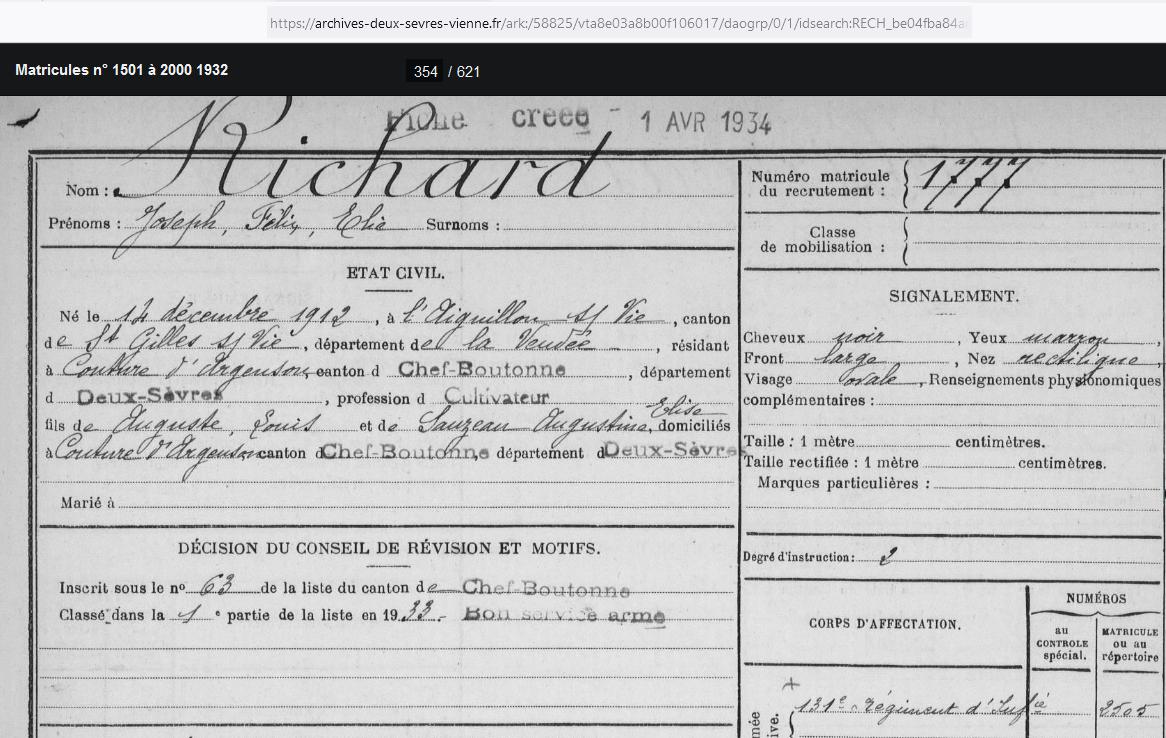 https://archives-deux-sevres-vienne.fr/ark:/58825/vta8e03a8b00f106017/daogrp/0/1/idsearch:RECH_be04fba84a
Matricules n° 1501 à 2000 1932
354 / 621
Fiche créée - 1 AVR 1934
Nom : Richard
Prénoms : Joseph, Félix, Elie Surnoms :
ETAT CIVIL.
Né le 14 décembre 1912, à l'Aiguillon s/ Vie, canton
de St Gilles s/ Vie, département de la Vendée, résidant
à Couture d'Argenson, canton d Chef-Boutonne, département
d Deux-Sèvres, profession d Cultivateur
fils de Auguste, Louis et de Sauzeau Augustine, Elise domiciliés
à Couture d'Argenson, canton d Chef-Boutonne département d Deux-Sèvres
Marié à
DÉCISION DU CONSEIL DE RÉVISION ET MOTIFS.
Inscrit sous le nº 63 de la liste du canton de Chef-Boutonne
Classé dans la 1e partie de la liste en 1933. Bon service armé
Numéro matricule du recrutement : 1777
Classe de mobilisation :
SIGNALEMENT.
Cheveux noir, Yeux marron,
Front large, Nez rectiligne,
Visage ovale, Renseignements physionomiques
complémentaires :
Taille : 1 mètre centimètres.
Taille rectifiée : 1 mètre centimètres.
Marques particulières :
Degré d'instruction : 2
CORPS D'AFFECTATION.
NUMÉROS
au CONTROLE spécial.
MATRICULE ou au répertoire
131e Régiment d'Infie 2505